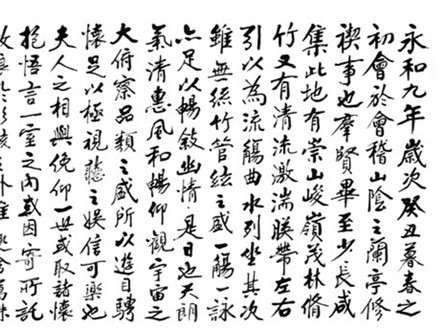 永和九年歲次癸丑暮春之
初會於會稽山陰之蘭亭修
禊事也羣賢畢至少長咸
集此地有崇山峻嶺茂林脩
竹又有清流激湍映帶左右
引以為流觴曲水列坐其次
雖無絲竹管絃之盛一觴一詠
亦足以暢敘幽情是日也天朗
氣清惠風和暢仰觀宇宙之
大俯察品類之盛所以遊目騁
懷足以極視聽之娛信可樂也
夫人之相與俯仰一世或取諸懷
抱悟言一室之內或因寄所託